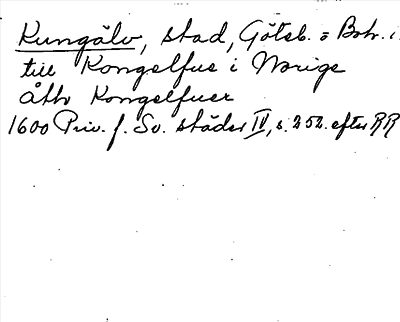 Kungälv, stad, Göteb. o Boh. l.
till Kongelfue i Norige
åthr Kongelfuer
1600 Priv. f. Sv. städer IV, s. 252. efter RR